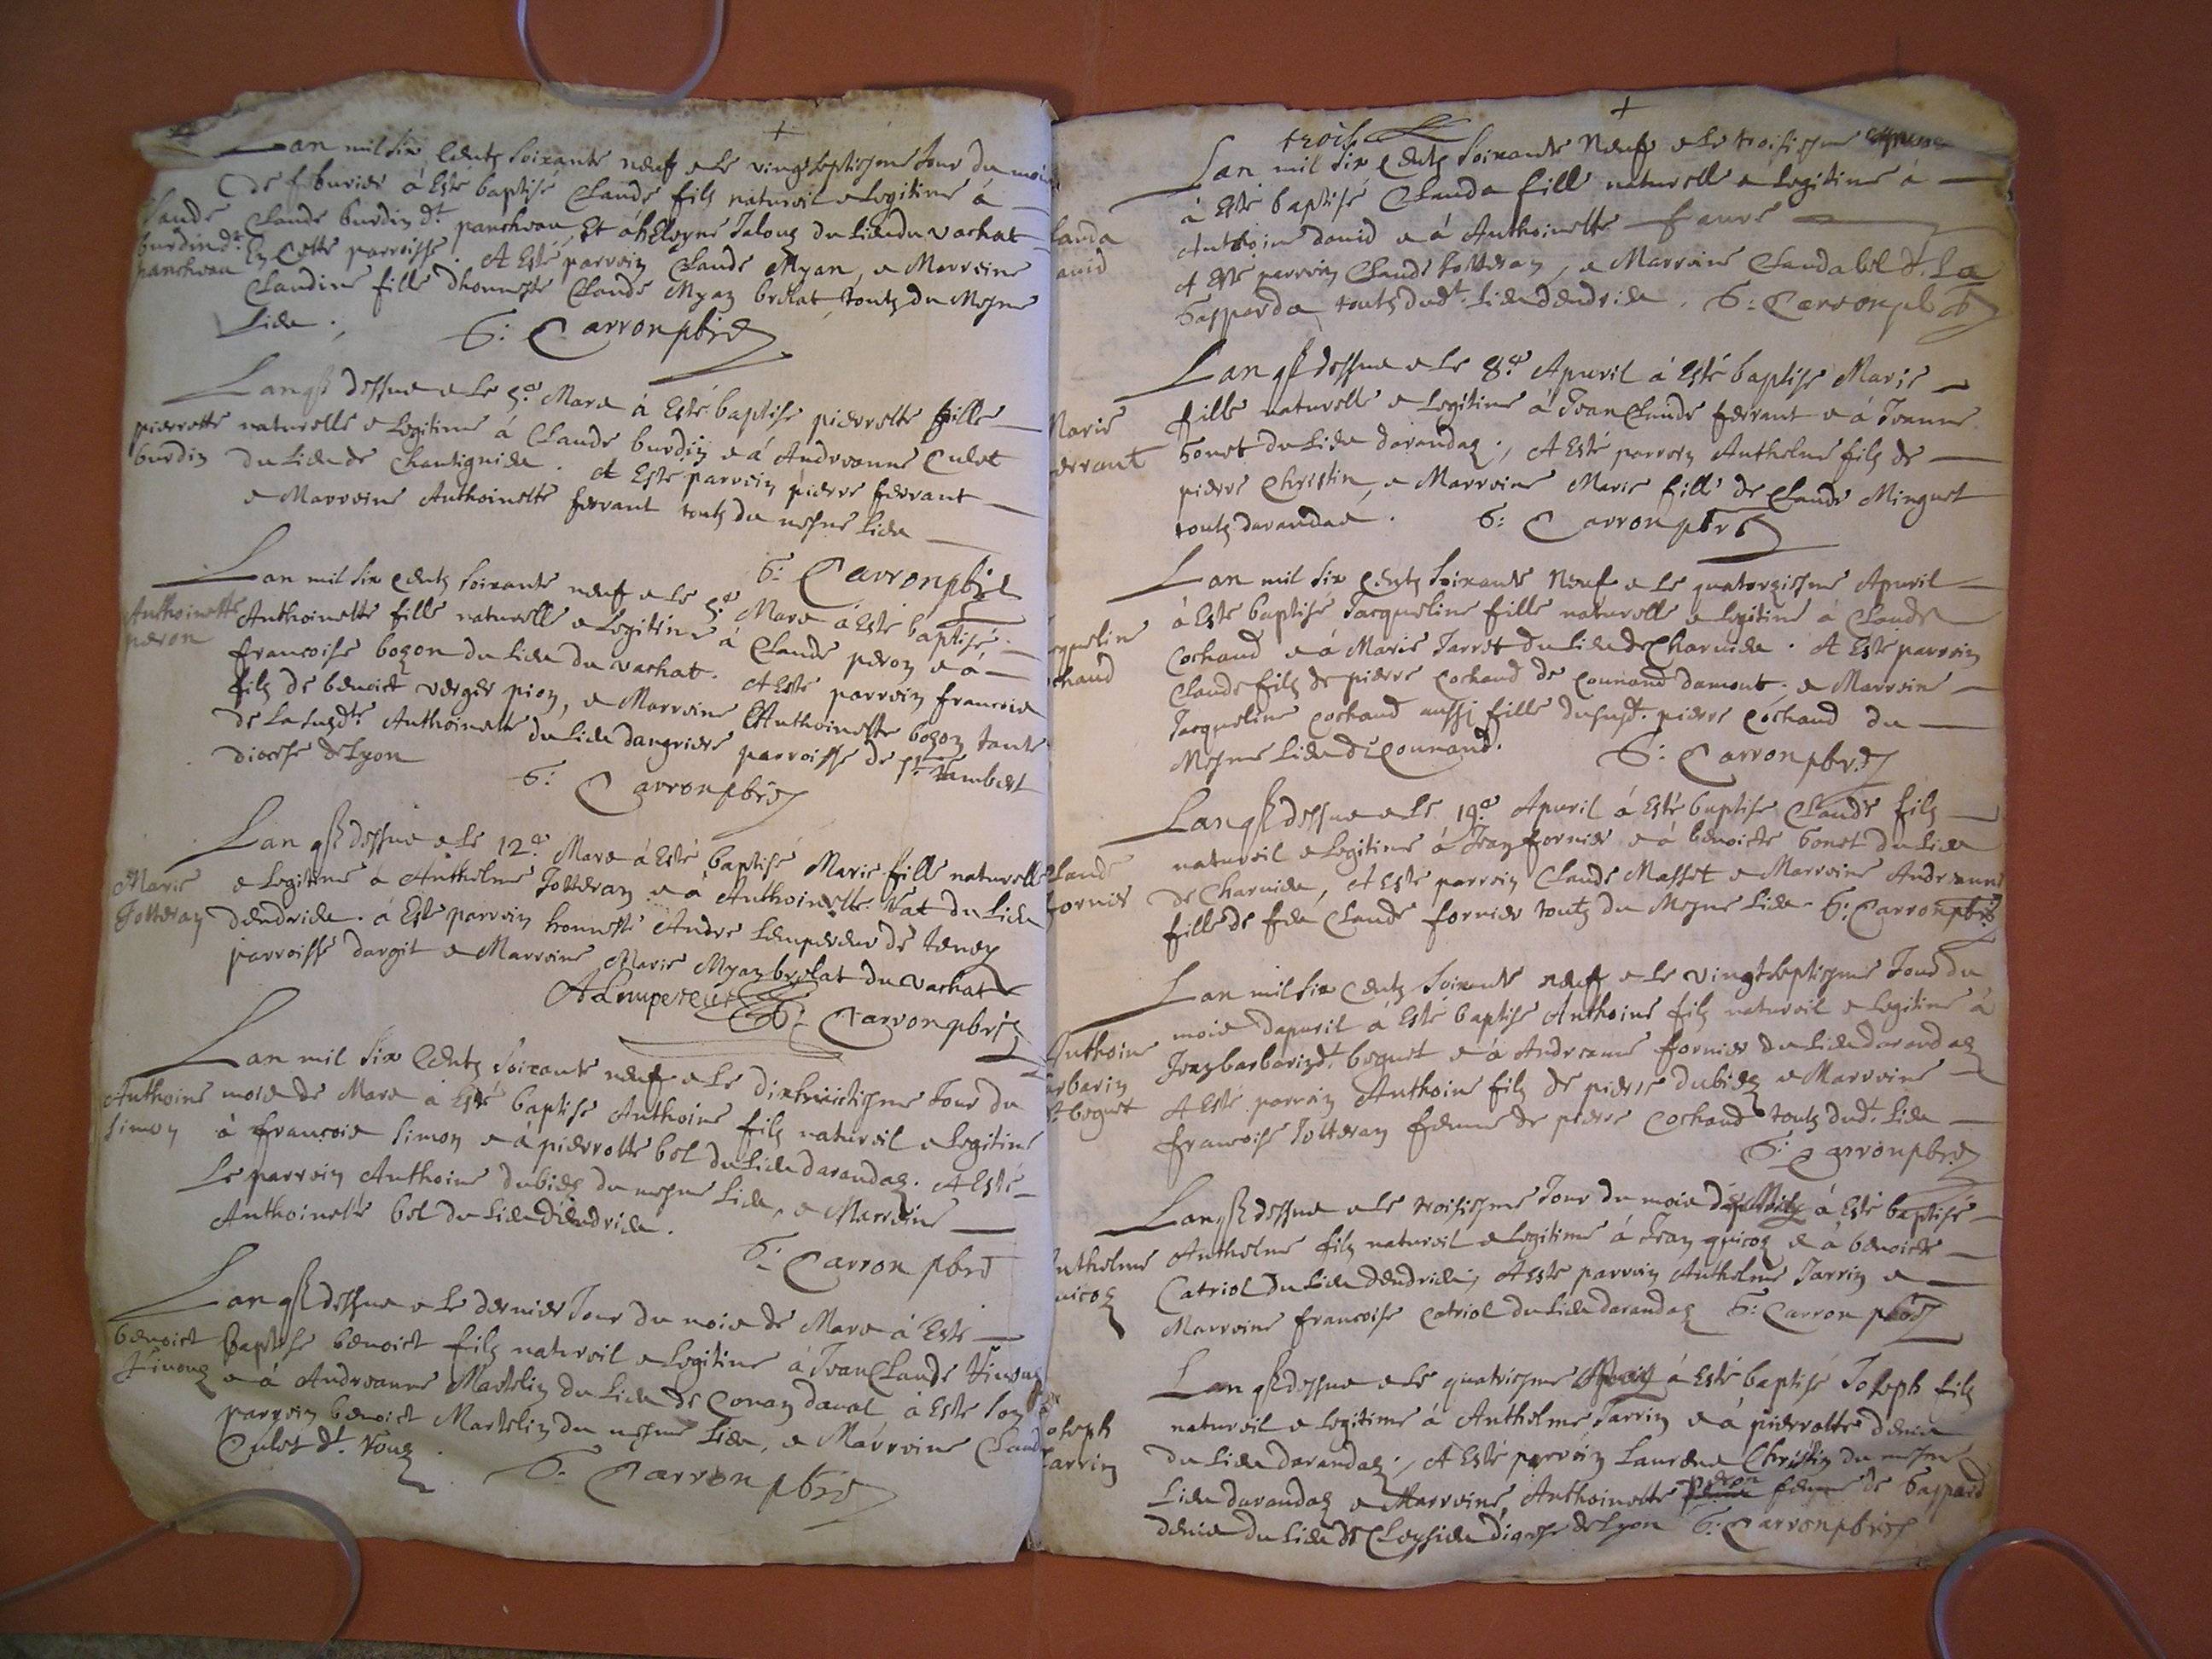 Lan mil six centz soixante neuf e le vingtseptiesme Jour du mois
de febvrier à Esté baptisé Claude filz naturel e legitime à
Claude burdin dt. pancheau, Et à
En Cette parroisse. A Esté parrein Claude Myan, e Marreine
Claudine fille dhonneste Claude Myan brolat, toutz du Mesme
Lieu.
G: Carron pbre
Claude
burdin dt.
pancheau
Lan q dessus e le 5e Mars à Esté baptise pierrette fille
naturelle e legitime à Claude burdin e á Andreanne Culet
du Lieu de Chantignieu. A Esté parrein pierre ferrant
e Marreine Anthoinette ferrant toutz du mesme Lieu
G: Carron pbre
pierrette
burdin
Lan mil six centz soixante neuf e le 5e Mars à Esté baptise,
Anthoinette fille naturelle e legitime á Claude peron e á
francoise bozon du Lieu du vachat. A Esté parrein francois
filz de benoict verger pion, e Marreine Anthoinette bozon tante
de la susdte Anthoinette du Lieu dangrieres parroisse de St. Rambert
diocese de Lyon
G: Carron pbre
Anthoinette
peron
Lan q dessus e le 12e Mars à Esté baptisé Marie fille naturelle
e legitime à Anthelme Jotteran e à Anthoinette Vat du Lieu
dendrieu. à Esté parrein honneste Andre Lempereur de teney
parroisse dargit e Marreine Marie Myan brolat du vachat
A Lempereur
G: Carron pbre
Marie
Jotteran
Lan mil six centz soixante neuf e le dixhuictiesme Jour du
mois de Mars à Esté baptise Anthoine filz naturel e legitime
à francois simon e á pierrette bel du Lieu darandaz. A Esté
Le parrein Anthoine dubiez du mesme Lieu, e Marreine
Anthoinette bel du Lieu dendrieu.
G: Carron pbre
Anthoine
simon
Lan q dessus e le dernier Jour du mois de Mars à Esté
baptise benoict filz naturel e legitime à Jean Claude
e á Andreanne Martelin du Lieu de Conan daval, à Esté son
parrein benoict Martelin du mesme Lieu, e Marreine Claude
Culet dt.
G: Carron pbre
benoict
trois
Lan mil six centz soixante Neuf e le troisiesme
à Esté baptisé Clauda fille naturelle e legitime à
Anthoine david e á Anthoinette faure
A Esté parrein Claude Jotteran, e Marreine Clauda bel dt. La
Gasparda, toutz dudt. Lieu dendrieu. G: Carron pbre
Clauda
david
Lan q dessus e le 8e Apvril à Esté baptise Marie
fille naturelle e legitime á Jean Claude ferrant e á Jeanne
bonet du Lieu darandaz; A Esté parrein Anthelme filz de
pierre Christin, e Marreine Marie fille de Claude Minguet
toutz darandas. G: Carron pbre
Marie
ferrant
Lan mil six centz soixante Neuf e le quatorziesme Apvril
à Esté baptisé Jacqueline fille naturelle e legitime á Claude
Cochaud e á Marie Jarret du Lieu de Charvieu. A Esté parrein
Claude filz de pierre Cochaud de Counand damont, e Marreine
Jacqueline Cochaud aussj fille dususdt. pierre Cochaud du
Mesme Lieu de Counand.
G: Carron pbre
cqueline
ochaud
Lan q dessus e le 19e Apvril à Esté baptise Claude filz
naturel e legitime á Jean fornier e á benoicte bonet du Lieu
de Charvieu, A Esté parrein Claude Masset e Marreine Andreanne
fille de feu Claude fornier toutz du Mesme Lieu. G: Carron pbre
Claude
fornier
Lan mil six centz soixante neuf e le vingtseptiesme Jour du
mois dapvril à Esté baptise Anthoine filz naturel e legitime à
Jean barbarin dt. boguet e á Andreanne fornier du Lieu darandaz
A Esté parrein Anthoine filz de pierre dubiez e Marreine
francoise Jotteran femme de pierre Cochaud toutz dudt. Lieu
G: Carron pbre
Anthoine
arbarin
dt. boguet
Lan q dessus e le troisiesme Jour du mois de May à Esté baptisé
Anthelme filz naturel e legitime á Jean quicoz e à benoicte
Catriol du Lieu dendrieu; A Esté parrein Anthelme Jarrin e
Marreine francoise Catriol du Lieu darandaz G: Carron pbre
nthelme
uicoz
Lan q dessus e le quatriesme May à Esté baptisé Joseph filz
naturel e legitime á Anthelme Jarrin e á pierrette denis
du Lieu darandaz, A Esté parrein Laurens Christin du mesme
Lieu darandaz e Marreine, Anthoinette peron femme de Gaspard
denis du Lieu de Cleyzieu diocese de Lyon G: Carron pbre
oseph
Jarrin